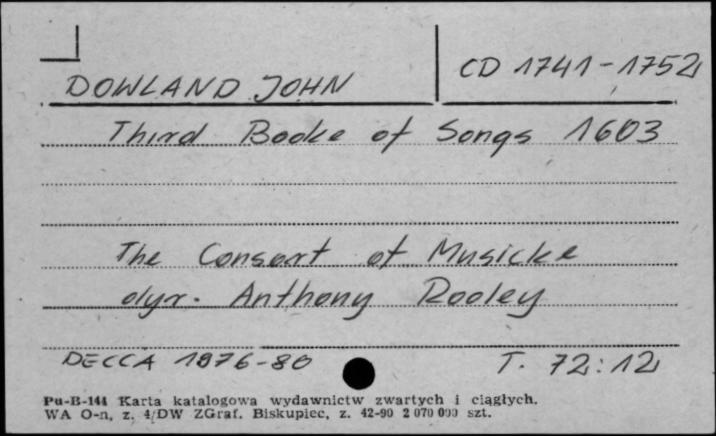 DOWLAND JOHN
CD 1741-1752
Third Booke of Songs 1603
The Consort of Musicke
dyr. Anthony Rooley
DECCA 1976-80
T. 72:12
Pu-B-144 Karta katalogowa wydawnictw zwartych i ciągłych.
WA O-n, z. 4/DW ZGraf. Biskupiec, z. 42-90 2 070 000 szt.